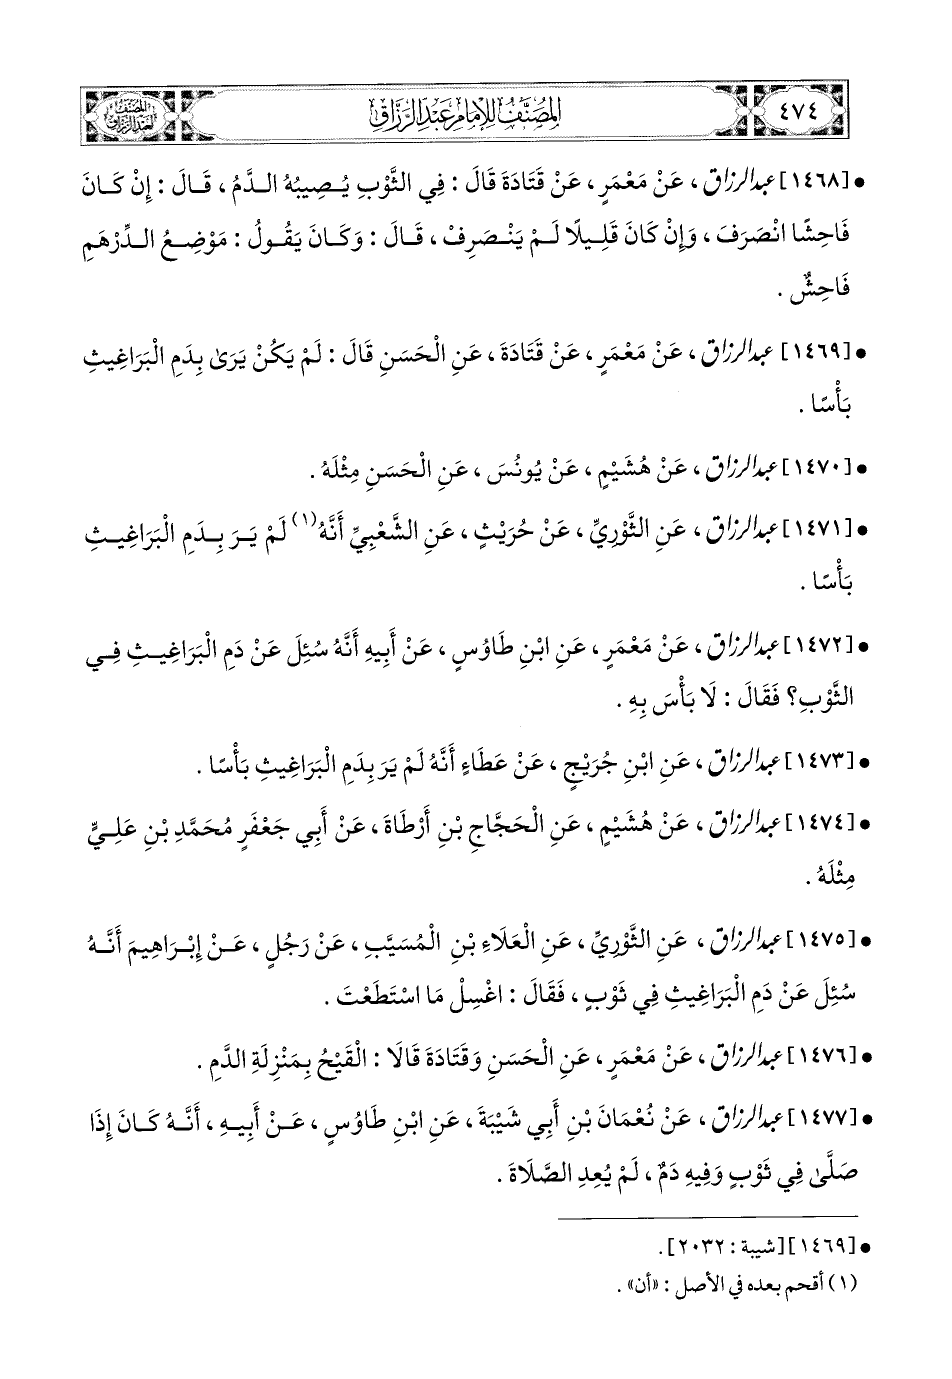 ٤٧٤
المصنف للإمام عبد الرزاق
المصنف لعبد الرزاق
• [١٤٦٨] عبد الرزاق، عَنْ مَعْمَرٍ، عَنْ قَتَادَةَ قَالَ : فِي الثَّوْبِ يُصِيبُهُ الدَّمُ، قَالَ : إِنْ كَانَ
فَاحِشًا انْصَرَفَ، وَإِنْ كَانَ قَلِيلًا لَمْ يَنْصَرِفْ، قَالَ : وَكَانَ يَقُولُ : مَوْضِعُ الدِّرْهَمِ
فَاحِشٌ .
• [١٤٦٩] عبد الرزاق، عَنْ مَعْمَرٍ، عَنْ قَتَادَةَ، عَنِ الْحَسَنِ قَالَ : لَمْ يَكُنْ يَرَىٰ بِدَمِ الْبَرَاغِيثِ
بَأْسًا .
• [١٤٧٠] عبد الرزاق، عَنْ هُشَيْمٍ، عَنْ يُونُسَ، عَنِ الْحَسَنِ مِثْلَهُ .
• [١٤٧١] عبد الرزاق، عَنِ الثَّوْرِيِّ، عَنْ حُرَيْثٍ، عَنِ الشَّعْبِيِّ أَنَّهُ (١) لَمْ يَرَ بِدَمِ الْبَرَاغِيثِ
بَأْسًا .
• [١٤٧٢] عبد الرزاق، عَنْ مَعْمَرٍ، عَنِ ابْنِ طَاوُسٍ، عَنْ أَبِيهِ أَنَّهُ سُئِلَ عَنْ دَمِ الْبَرَاغِيثِ فِي
الثَّوْبِ؟ فَقَالَ : لَا بَأْسَ بِهِ .
• [١٤٧٣] عبد الرزاق، عَنِ ابْنِ جُرَيْجٍ، عَنْ عَطَاءٍ أَنَّهُ لَمْ يَرَ بِدَمِ الْبَرَاغِيثِ بَأْسًا .
• [١٤٧٤] عبد الرزاق، عَنْ هُشَيْمٍ، عَنِ الْحَجَّاجِ بْنِ أَرْطَاةَ، عَنْ أَبِي جَعْفَرٍ مُحَمَّدِ بْنِ عَلِيٍّ
مِثْلَهُ .
• [١٤٧٥] عبد الرزاق، عَنِ الثَّوْرِيِّ، عَنِ الْعَلَاءِ بْنِ الْمُسَيَّبِ، عَنْ رَجُلٍ، عَنْ إِبْرَاهِيمَ أَنَّهُ
سُئِلَ عَنْ دَمِ الْبَرَاغِيثِ فِي ثَوْبٍ، فَقَالَ : اغْسِلْ مَا اسْتَطَعْتَ .
• [١٤٧٦] عبد الرزاق، عَنْ مَعْمَرٍ، عَنِ الْحَسَنِ وَقَتَادَةَ قَالَا : الْقَيْحُ بِمَنْزِلَةِ الدَّمِ .
• [١٤٧٧] عبد الرزاق، عَنْ نُعْمَانَ بْنِ أَبِي شَيْبَةَ، عَنِ ابْنِ طَاوُسٍ، عَنْ أَبِيهِ، أَنَّهُ كَانَ إِذَا
صَلَّىٰ فِي ثَوْبٍ وَفِيهِ دَمٌ، لَمْ يُعِدِ الصَّلَاةَ .
• [١٤٦٩] [شيبة : ٢٠٣٢] .
(١) أقحم بعده في الأصل : «أن» .